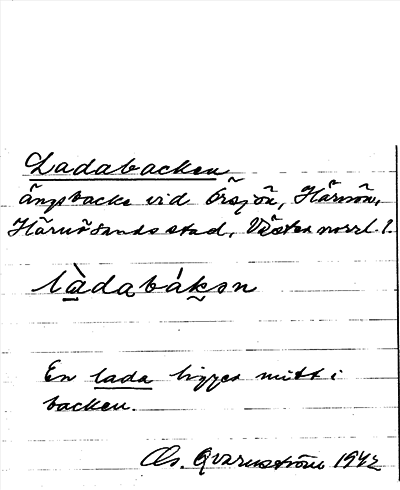 Ladabacken
ängsbacke vid Örsjön, Härnön,
Härnösands stad, Västernorrl. l.
làdabák̰ən
En lada ligger mitt i
backen.
Os. Qvarnström 1942